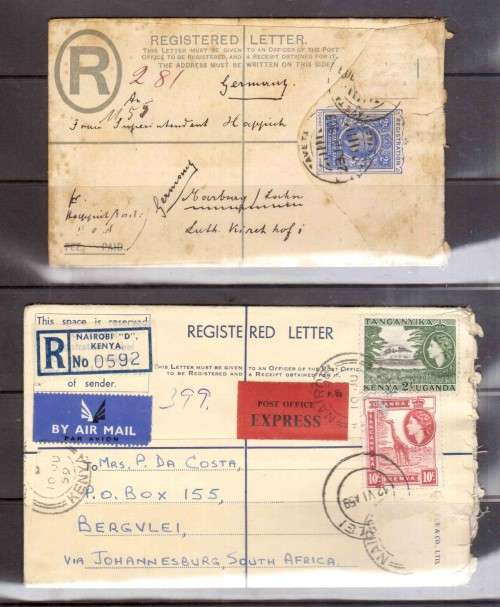 REGISTERED LETTER.
THIS LETTER MUST BE GIVEN TO AN OFFICER OF THE POST
OFFICE TO BE REGISTERED, AND A RECEIPT OBTAINED FOR IT.
THE ADDRESS MUST BE WRITTEN ON THIS SIDE.
R
281
Germany
An
1155
Frau Superintendent Happich
REGISTRATION
Germany
Marburg/Lahn
Luth. Kirchhof 1
FEE PAID.
This space is reserved
NAIROBI "D",
KENYA
R No 0592
of sender.
REGISTERED LETTER
THIS LETTER MUST BE GIVEN TO AN OFFICER OF THE POST OFFICE
TO BE REGISTERED AND A RECEIPT OBTAINED FOR IT.
TANGANYIKA
KENYA 2/- UGANDA
399
POST OFFICE
EXPRESS
BY AIR MAIL
PAR AVION
10c 10c
KENYA
12 VI 59
To MRS. P. DA COSTA,
P.O. BOX 155,
BERGVLEI,
VIA JOHANNESBURG, SOUTH AFRICA.
& CO. LTD.